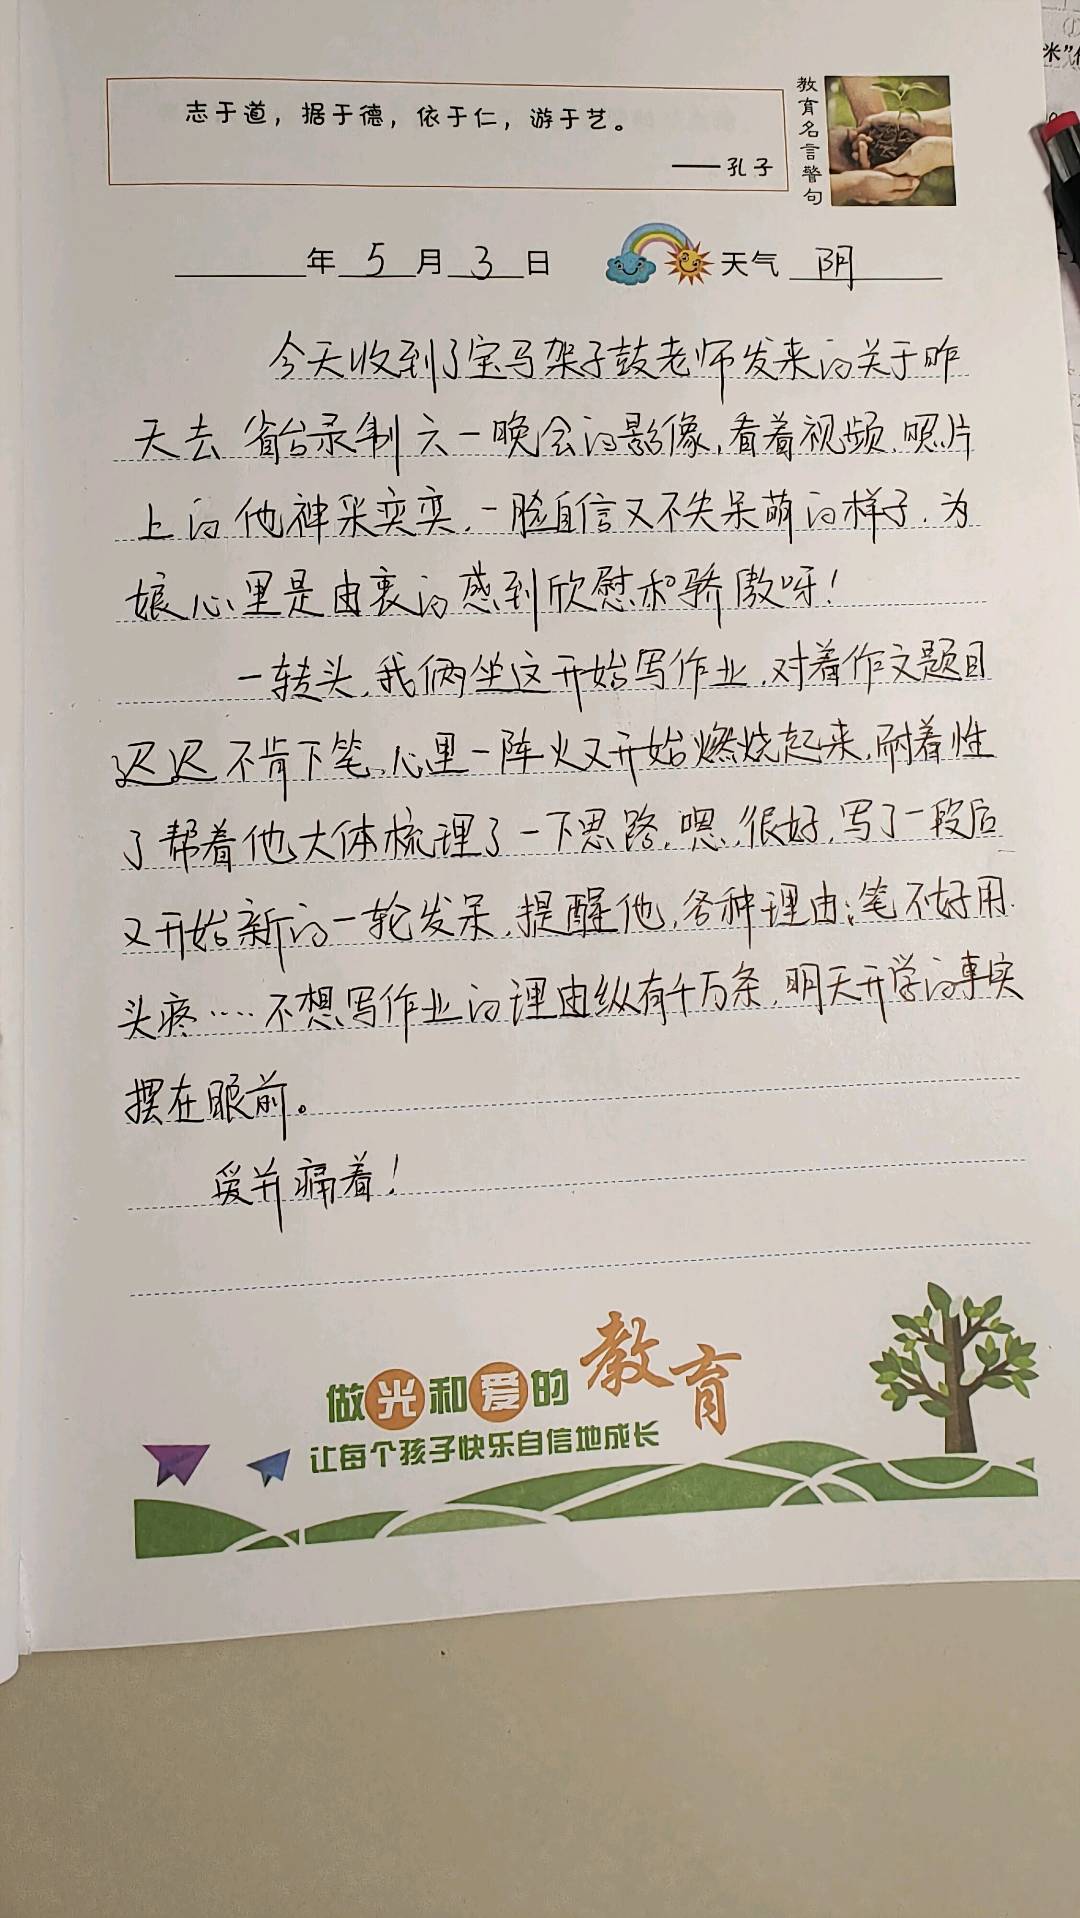 志于道，据于德，依于仁，游于艺。
——孔子
教育名言警句
年 5 月 3 日 天气 阴
今天收到了宝马架子鼓老师发来的关于昨
天去省台录制六一晚会的影像，看着视频、照片
上的他神采奕奕，一脸自信又不失呆萌的样子，为
娘心里是由衷的感到欣慰和骄傲呀！
一转头，我俩坐这开始写作业，对着作文题目
迟迟不肯下笔，心里一阵火又开始燃烧起来，耐着性
子帮着他大体梳理了一下思路，嗯，很好，写了一段后
又开始新的一轮发呆，提醒他，各种理由：笔不好用、
头疼……不想写作业的理由纵有千万条，明天开学的事实
摆在眼前。
爱并痛着！
做光和爱的教育
让每个孩子快乐自信地成长